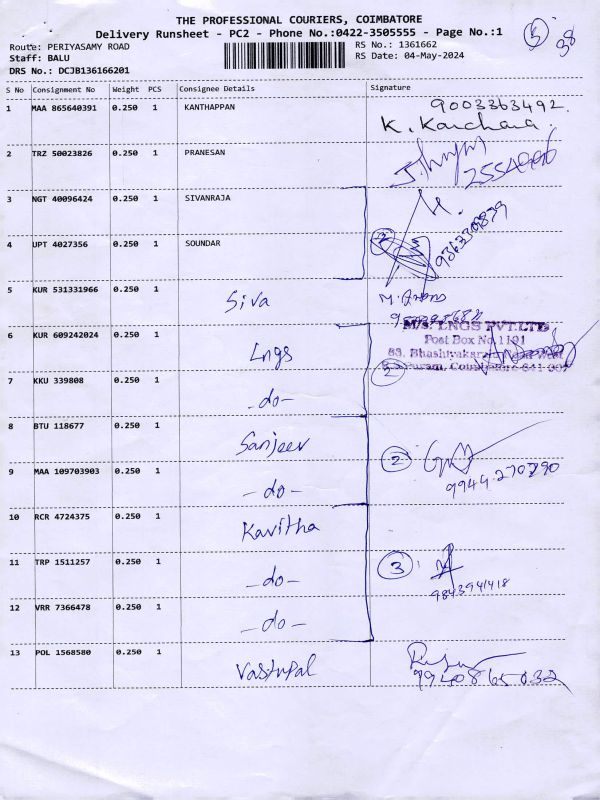 THE PROFESSIONAL COURIERS, COIMBATORE
Delivery Runsheet - PC2 - Phone No.:0422-3505555 - Page No.:1
5 38
Route: PERIYASAMY ROAD
Staff: BALU
DRS No.: DCJB136166201
RS No.: 1361662
RS Date: 04-May-2024
S No Consignment No Weight PCS Consignee Details Signature
1 MAA 865640391 0.250 1 KANTHAPPAN 9003363492.
K. Kanchana.
2 TRZ 50023826 0.250 1 PRANESAN
3 NGT 40096424 0.250 1 SIVANRAJA
4 UPT 4027356 0.250 1 SOUNDAR 2
5 KUR 531331966 0.250 1 Siva
6 KUR 609242024 0.250 1 Lngs
M/s. LNGS PVT.LTD
Post Box No.1101
83, Bhashyakara West
Coimbatore-641 007
7 KKU 339808 0.250 1 -do- 2
8 BTU 118677 0.250 1 Sanjeev
9 MAA 109703903 0.250 1 -do- 2 9944270790
10 RCR 4724375 0.250 1 Kavitha
11 TRP 1511257 0.250 1 -do- 3 9843941418
12 VRR 7366478 0.250 1 -do-
13 POL 1568580 0.250 1 Vastupal 9940865032